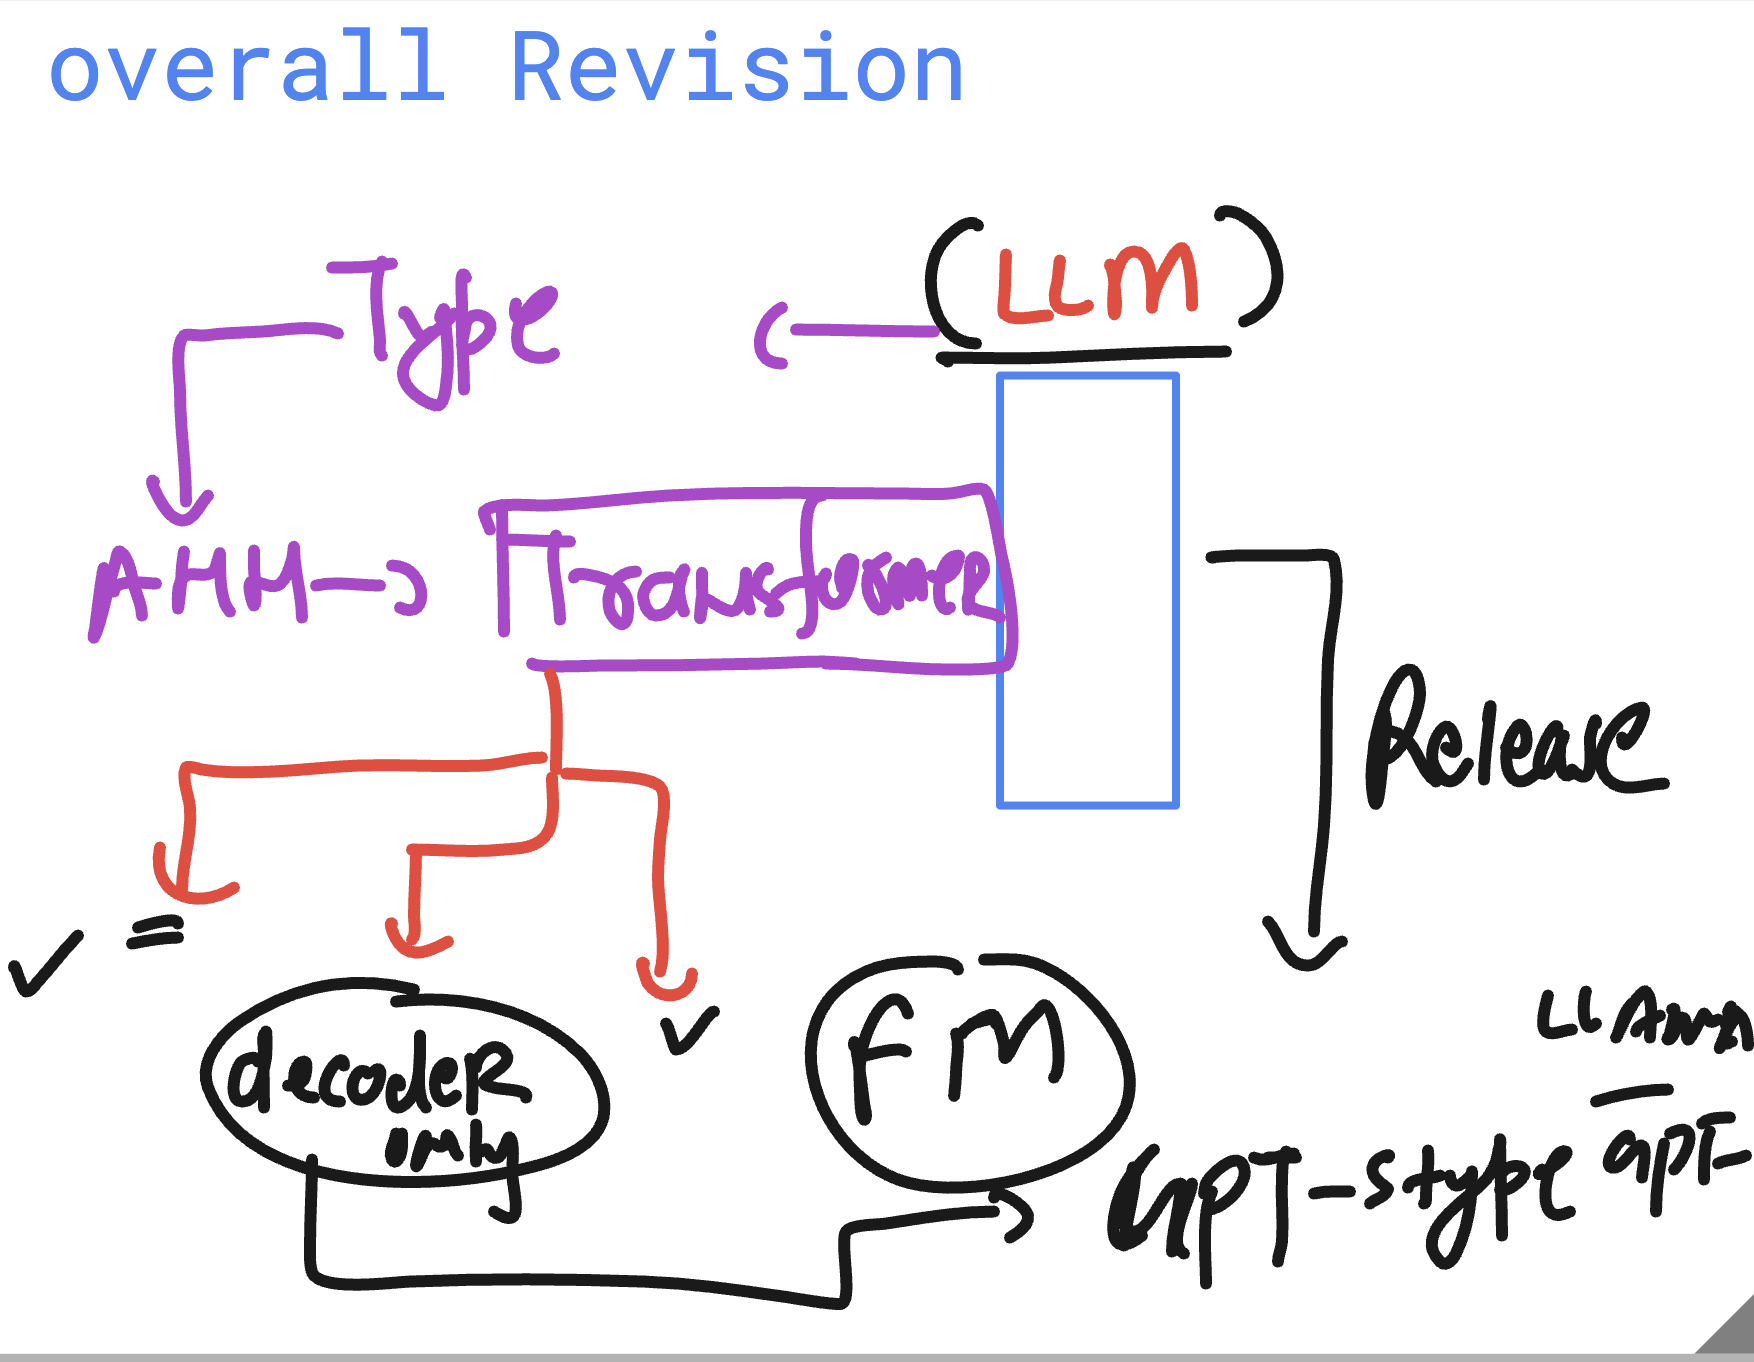 overall Revision
(LLM)
Type
Transformer
Release
decoder
only
FM
LLAMA
GPT-stype
GPT-